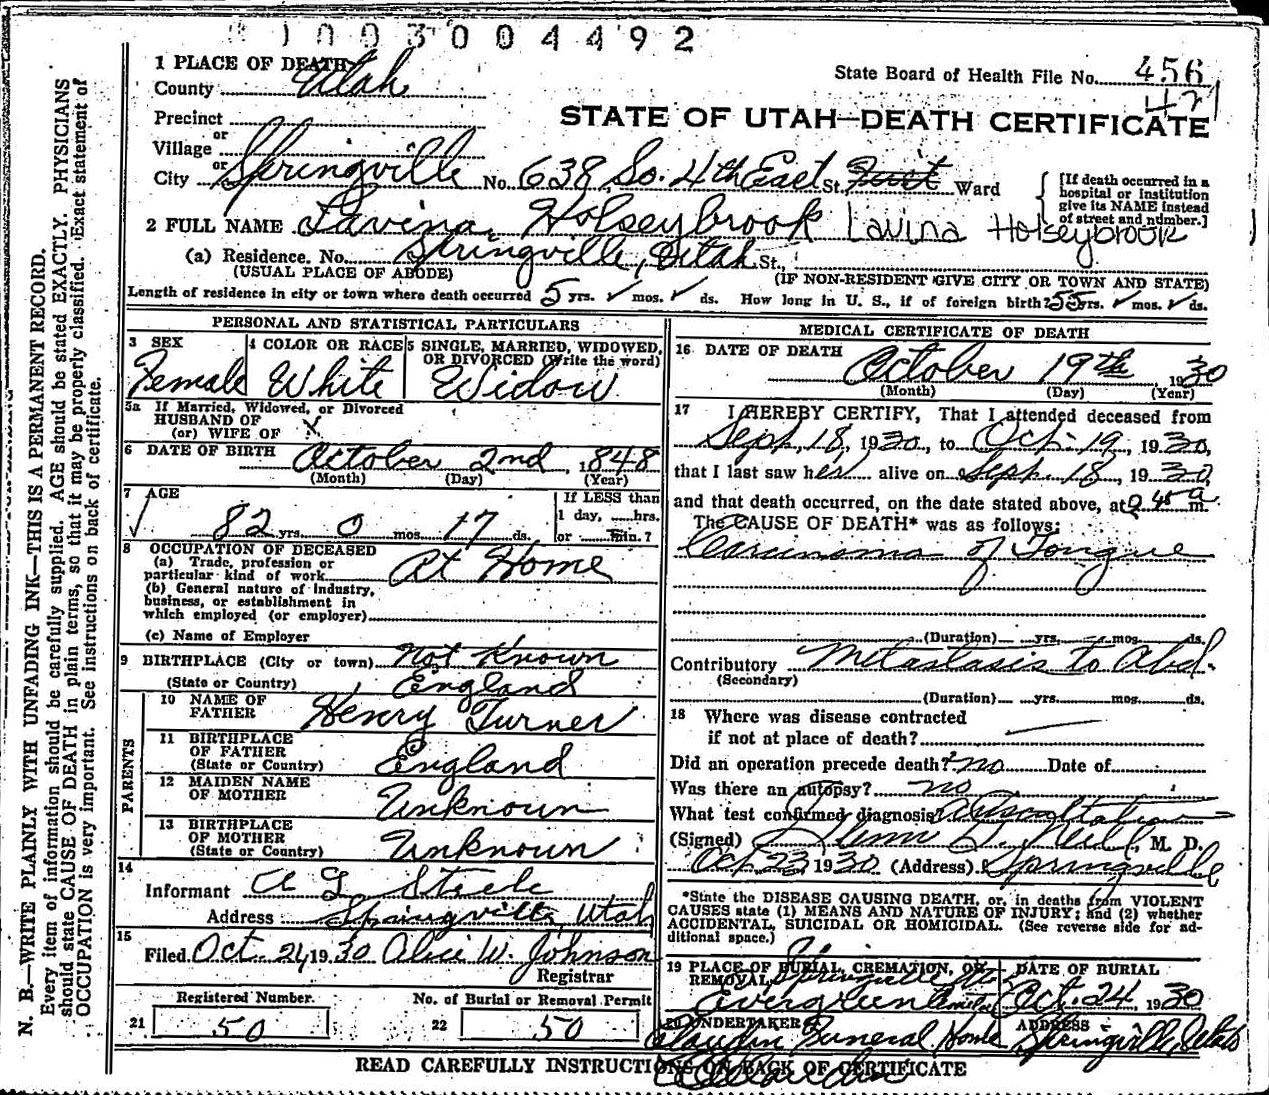 1003004492
1 PLACE OF DEATH
County Utah
State Board of Health File No. 456
421
STATE OF UTAH—DEATH CERTIFICATE
Precinct
or
Village
or
City Springville No. 638 So. 4th East St. Ward
[If death occurred in a
hospital or institution
give its NAME instead
of street and number.]
2 FULL NAME Lavina Holseybrook Lavina Holseybrook
(a) Residence. No. Springville, Utah St.,
(USUAL PLACE OF ABODE) (IF NON-RESIDENT GIVE CITY OR TOWN AND STATE)
Length of residence in city or town where death occurred 5 yrs. ✓ mos. ✓ ds. How long in U. S., if of foreign birth? 55 yrs. ✓ mos. ✓ ds.
PERSONAL AND STATISTICAL PARTICULARS
3 SEX
Female
4 COLOR OR RACE
White
5 SINGLE, MARRIED, WIDOWED,
OR DIVORCED (Write the word)
Widow
5a If Married, Widowed, or Divorced
HUSBAND OF
(or) WIFE OF X
6 DATE OF BIRTH October 2nd, 1848
(Month) (Day) (Year)
7 AGE
✓ 82 yrs. 0 mos. 17 ds.
If LESS than
1 day, hrs.
or min.?
8 OCCUPATION OF DECEASED
(a) Trade, profession or
particular kind of work At Home
(b) General nature of industry,
business, or establishment in
which employed (or employer)
(c) Name of Employer
9 BIRTHPLACE (City or town) Not Known
(State or Country) England
PARENTS
10 NAME OF
FATHER Henry Turner
11 BIRTHPLACE
OF FATHER
(State or Country) England
12 MAIDEN NAME
OF MOTHER Unknown
13 BIRTHPLACE
OF MOTHER
(State or Country) Unknown
14
Informant A G Steele
Address Springville, Utah
15
Filed Oct. 24, 1930 Alice W. Johnson
Registrar
Registered Number.
21 50
No. of Burial or Removal Permit
22 50
MEDICAL CERTIFICATE OF DEATH
16 DATE OF DEATH
October 19th, 1930
(Month) (Day) (Year)
17 I HEREBY CERTIFY, That I attended deceased from
Sept, 18, 1930, to Oct. 19, 1930,
that I last saw her alive on Sept. 18, 1930,
and that death occurred, on the date stated above, at 45 a m.
The CAUSE OF DEATH* was as follows:
Carcinoma of Tongue
(Duration) yrs. mos. ds.
Contributory Metastasis to Abd.
(Secondary)
(Duration) yrs. mos. ds.
18 Where was disease contracted
if not at place of death?
Did an operation precede death? no Date of
Was there an autopsy? no
What test confirmed diagnosis Auscultation
(Signed) Neil, M. D.
Oct 23, 1930 (Address) Springville
*State the DISEASE CAUSING DEATH, or, in deaths from VIOLENT
CAUSES state (1) MEANS AND NATURE OF INJURY; and (2) whether
ACCIDENTAL, SUICIDAL OR HOMICIDAL. (See reverse side for ad-
ditional space.)
19 PLACE OF BURIAL, CREMATION, OR
REMOVAL Springville
Evergreen
DATE OF BURIAL
Oct. 24, 1930
20 UNDERTAKER
Claudin Funeral Home
ADDRESS
Springville, Utah
READ CAREFULLY INSTRUCTIONS ON BACK OF CERTIFICATE
N. B.—WRITE PLAINLY WITH UNFADING INK—THIS IS A PERMANENT RECORD.
Every item of information should be carefully supplied. AGE should be stated EXACTLY. PHYSICIANS
should state CAUSE OF DEATH in plain terms, so that it may be properly classified. Exact statement of
OCCUPATION is very important. See instructions on back of certificate.